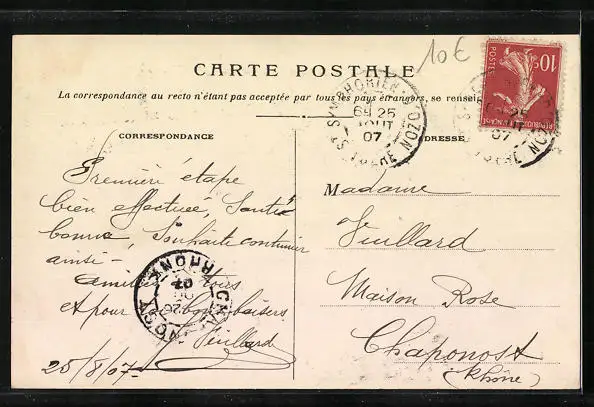 10€
CARTE POSTALE
La correspondance au recto n'étant pas acceptée par tous les pays étrangers, se renseig
CORRESPONDANCE
ADRESSE
POSTES
10c
REPUBLIQUE FRANÇAISE
ST SYMPHORIEN D'OZON
ISERE
6H 25
AOUT
07
Première étape
bien effectuée, Santé
bonne, Souhaite continuer
ainsi -
et pour bons baisers
Vuillard
25/8/07-
RHONE
07
26
Madame
Vuillard
Maison Rose
Chaponost
(Rhône)